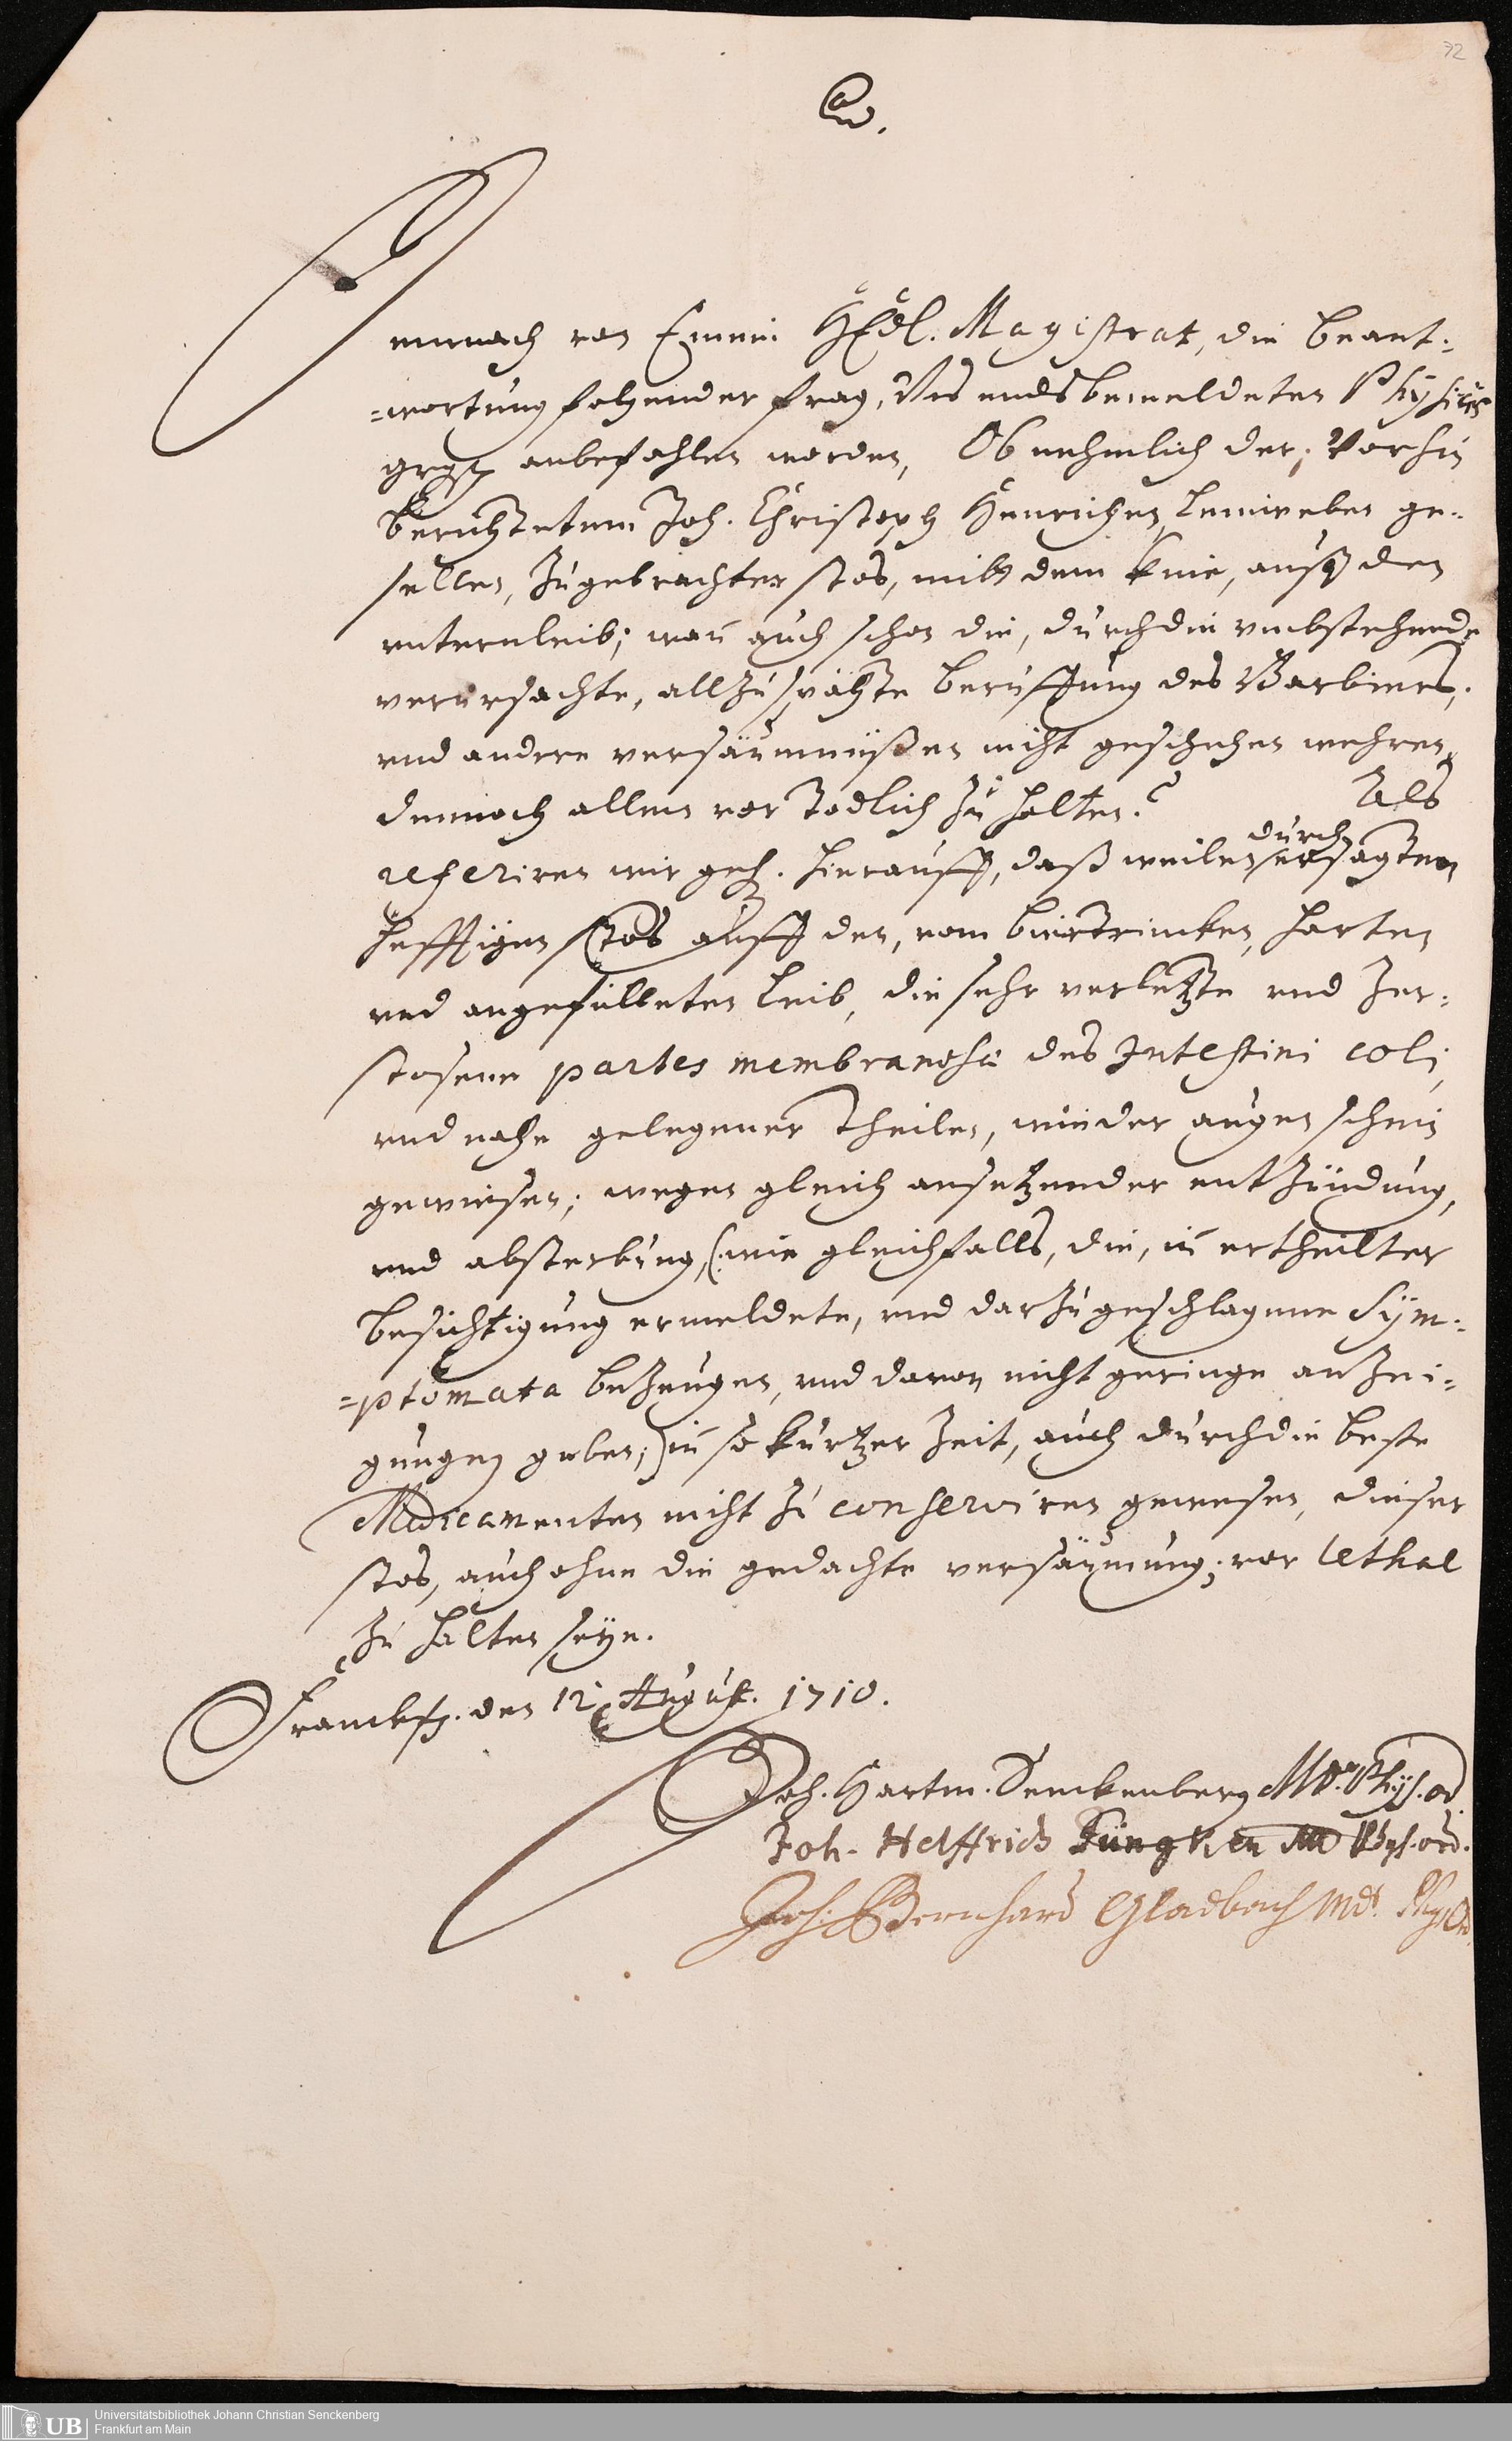 72
Demnach von Einem HEdl. Magistrat, die beant-
=wortung folgender frag, Uns endsbemeldeten Physicis
grgst anbefohlen worden, Ob nehmlich der, Vorhin
berichtetem Joh. Christoph Henrichen, Leinweber ge-
sellen, Zugebrachter stos, mitt dem knie, auff den
unternleib; wan auch schon die, durch die umbstehende
verursachte, allzu späthte beruffung des Barbiers,
und andere versäumnüßen nicht geschehen wehren,
dennoch allein vor Todlich zu halten? Als
referiren wir geh. hierauff, daß weilen durch ersagten
hefftigen stos auff den, vom biertrincken, harten
und angefülleten leib, die sehr verletzte und Zer-
stosene partes membranosae des Intestini coli,
und nahe gelegener theilen, wie der augenschein
gewiesen; wegen gleich ansetzender entzündung,
und absterbung, (wie gleichfalls, die, in ertheilter
besichtigung ermeldete, und darzu geschlagene Sym-
=ptomata bezeugen, und davon nicht geringe anzei-
gungen geben;) in so kurtzer Zeit, auch durch die beste
Medicamenten nicht zu conserviren gewesen, dieser
stos, auch ohne die gedachte versäumung, vor lethal
zu halten seye.
Franckf. den 12 August. 1710.
Joh. Hartm. Senckenberg MD. Phys. ord.
Joh. Helffrich Jüngken MD Phys. ord.
Joh. Bernhard Gladbach MD. Phys Ord.
UB
Universitätsbibliothek Johann Christian Senckenberg
Frankfurt am Main